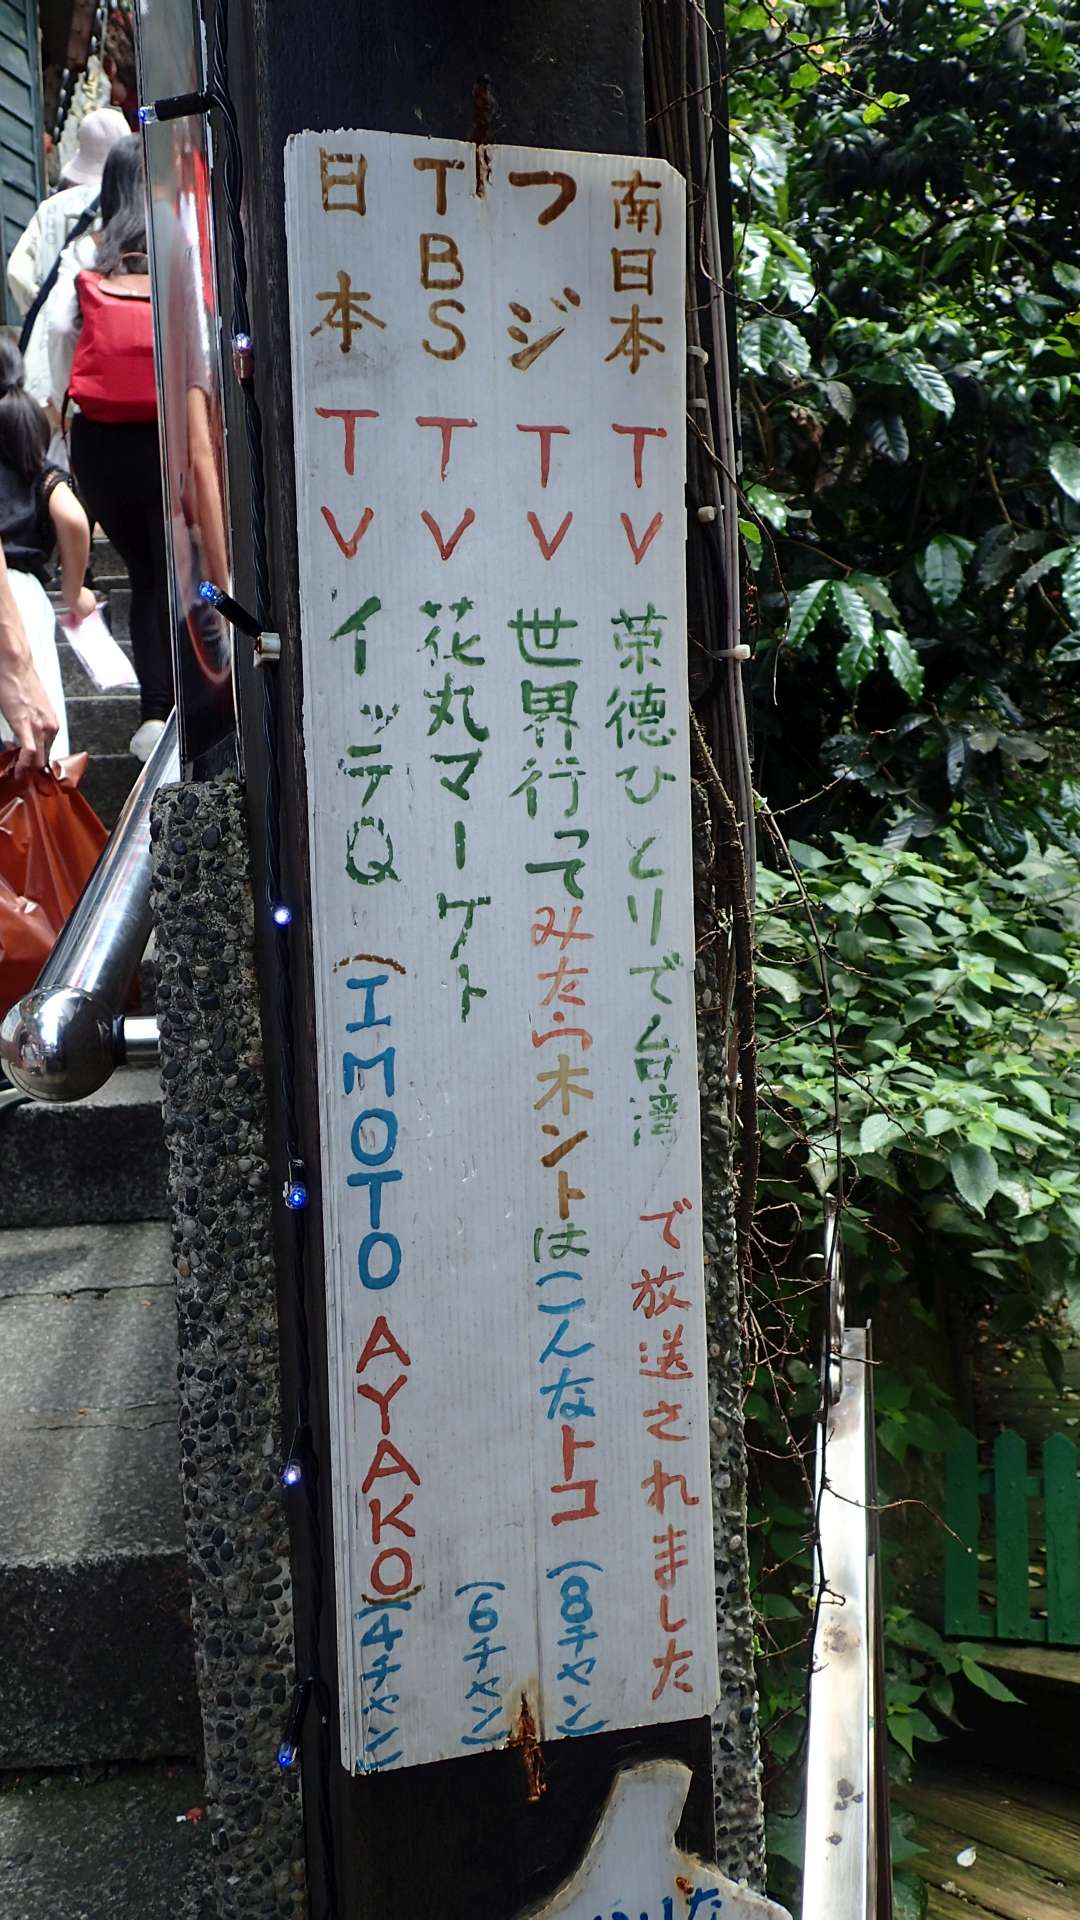 南日本TV 荣德ひとりで台湾 で放送されました
フジTV 世界行ってみたらホントはこんなトコ (8チャン)
TBSTV 花丸マーケット (6チャン)
日本TV イッテQ (IMOTO AYAKO) (4チャン)